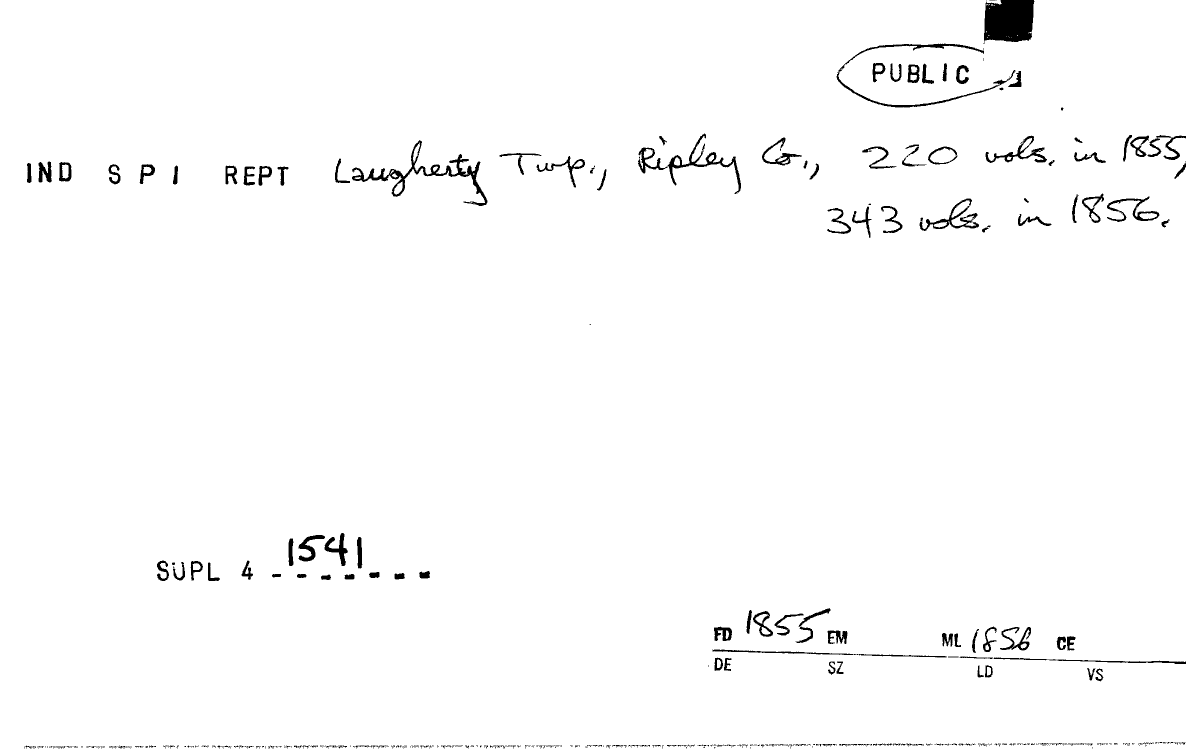 PUBLIC
IND S P I REPT Laugherty Twp., Ripley Co., 220 vols. in 1855,
343 vols. in 1856.
SUPL 4 1541
FD 1855 EM ML 1856 CE
DE SZ LD VS